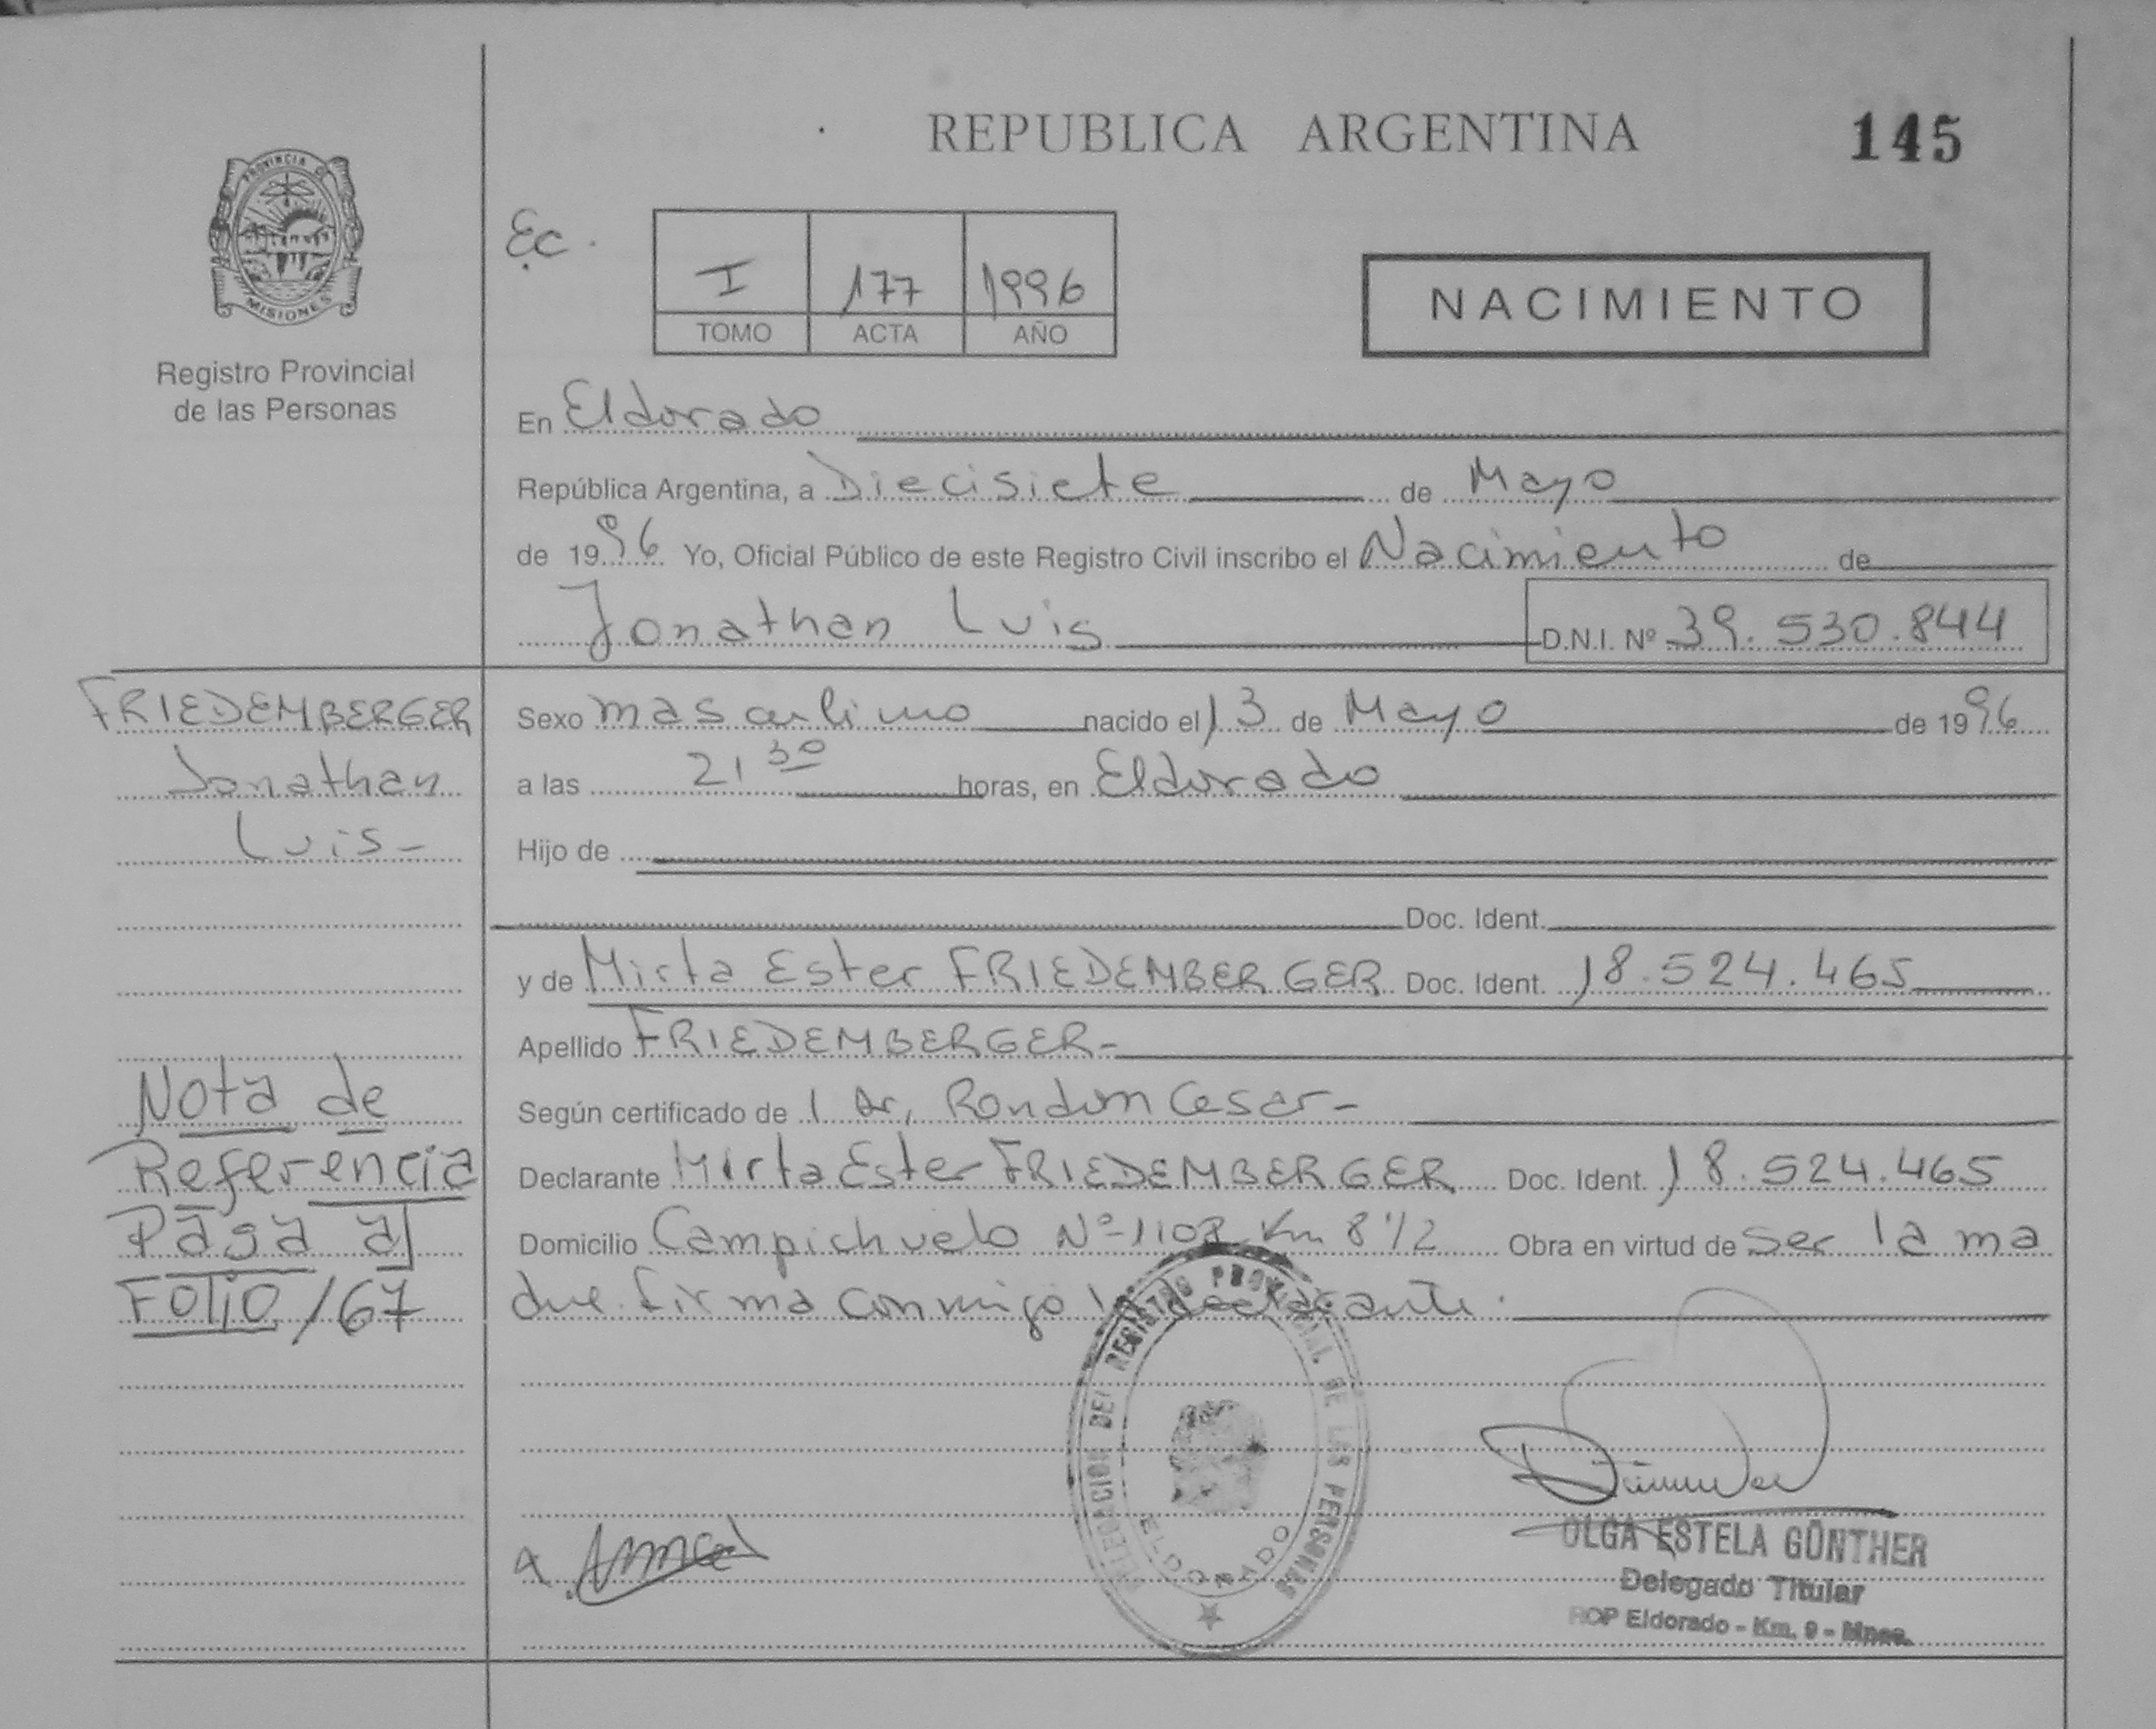 REPUBLICA ARGENTINA
145
PROVINCIA DE
MISIONES
Registro Provincial
de las Personas
Ec.
I 177 1996
TOMO ACTA AÑO
NACIMIENTO
En Eldorado
República Argentina, a Diecisiete de Mayo
de 1996 Yo, Oficial Público de este Registro Civil inscribo el Nacimiento de
Jonathan Luis D.N.I. Nº 39.530.844
FRIEDEMBERGER
Jonathan
Luis-
Sexo masculino nacido el 13 de Mayo de 1996
a las 21 30 horas, en Eldorado
Hijo de
Doc. Ident.
y de Mirta Ester FRIEDEMBERGER Doc. Ident. 18.524.465
Apellido FRIEDEMBERGER-
Según certificado de 1 Dr, Rondon Cesar-
Declarante Mirta Ester FRIEDEMBERGER Doc. Ident. 18.524.465
Domicilio Campichuelo Nº 1102 Km 8 1/2 Obra en virtud de ser la ma
dre firma conmigo la declarante.
Nota de
Referencia
Pasa al
FOLIO /67
DELEGACION DEL REGISTRO PROVINCIAL DE LAS PERSONAS
ELDORADO
OLGA ESTELA GÜNTHER
Delegado Titular
ROP Eldorado - Km. 9 - Mnes.